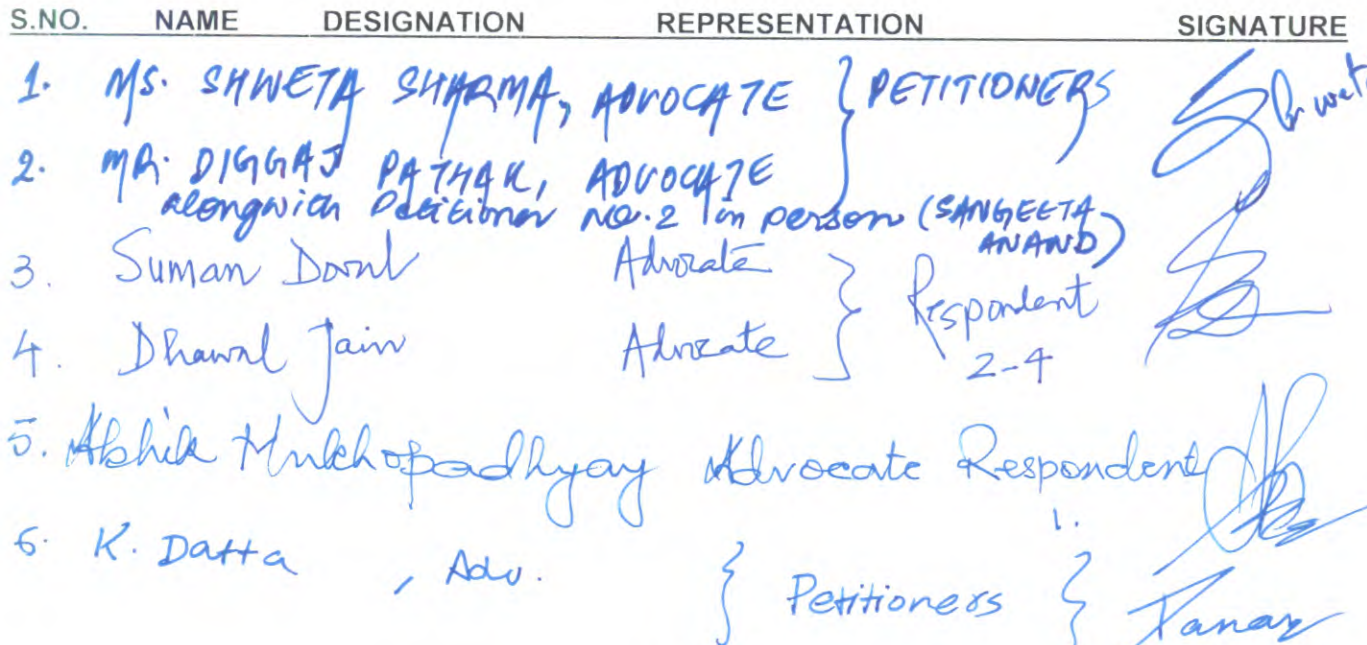 S.NO. NAME DESIGNATION REPRESENTATION SIGNATURE
1. MS. SHWETA SHARMA, ADVOCATE } PETITIONERS Shweta
2. MR. DIGGAJ PATHAK, ADVOCATE
alongwith Petitioner NO.2 in person (SANGEETA
ANAND)
3. Suman Advocate } Respondent
4. Dhawal Jain Advocate 2-4
5. Abhik Mukhopadhyay Advocate Respondent
1.
6. K. Datta , Adv. { Petitioners {